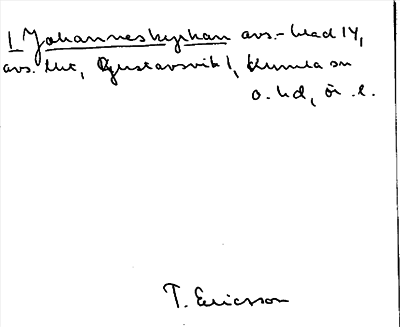 1 Johanneskyrkan avs.-blad 14,
avs. lht, Gustavsvik 1, Kumla sn
o. hd, ör. l.
T. Ericsson